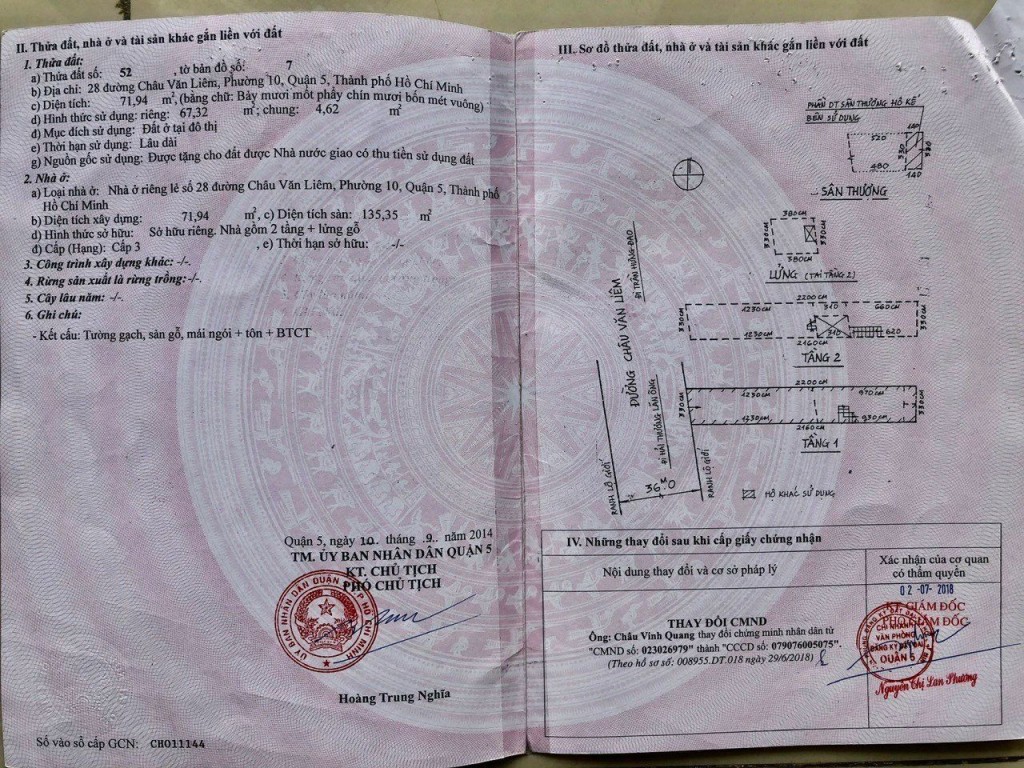 II. Thửa đất, nhà ở và tài sản khác gắn liền với đất
1. Thửa đất:
a) Thửa đất số: 52 , tờ bản đồ số: 7
b) Địa chỉ: 28 đường Châu Văn Liêm, Phường 10, Quận 5, Thành phố Hồ Chí Minh
c) Diện tích: 71,94 m², (bằng chữ: Bảy mươi mốt phẩy chín mươi bốn mét vuông)
d) Hình thức sử dụng: riêng: 67,32 m²; chung: 4,62 m²
đ) Mục đích sử dụng: Đất ở tại đô thị
e) Thời hạn sử dụng: Lâu dài
g) Nguồn gốc sử dụng: Được tặng cho đất được Nhà nước giao có thu tiền sử dụng đất
2. Nhà ở:
a) Loại nhà ở: Nhà ở riêng lẻ số 28 đường Châu Văn Liêm, Phường 10, Quận 5, Thành phố
Hồ Chí Minh
b) Diện tích xây dựng: 71,94 m², c) Diện tích sàn: 135,35 m²
d) Hình thức sở hữu: Sở hữu riêng. Nhà gồm 2 tầng + lửng gỗ
đ) Cấp (Hạng): Cấp 3 , e) Thời hạn sở hữu: -/-
3. Công trình xây dựng khác: -/-.
4. Rừng sản xuất là rừng trồng: -/-.
5. Cây lâu năm: -/-.
6. Ghi chú:
- Kết cấu: Tường gạch, sàn gỗ, mái ngói + tôn + BTCT
Quận 5, ngày 10 tháng .9. năm 2014
TM. ỦY BAN NHÂN DÂN QUẬN 5
KT. CHỦ TỊCH
PHÓ CHỦ TỊCH
Hoàng Trung Nghĩa
Số vào sổ cấp GCN: CH011144
III. Sơ đồ thửa đất, nhà ở và tài sản khác gắn liền với đất
PHẦN DT SÂN THƯỢNG HỘ KẾ
BÊN SỬ DỤNG
520
330
480
140
SÂN THƯỢNG
380
330CM
330CM
380CM
LỬNG (TẠI TẦNG 2)
2200CM
1230CM 310 660CM
330CM
330CM
1230CM 310 620
2160CM
TẦNG 2
2200CM
1230CM 970CM
330CM
330CM
1230CM 930CM
2160CM
TẦNG 1
ĐI TRẦN HƯNG ĐẠO
ĐƯỜNG CHÂU VĂN LIÊM
ĐI HẢI THƯỢNG LÃN ÔNG
RANH LỘ GIỚI
36.0 M
RANH LỘ GIỚI
HỘ KHÁC SỬ DỤNG
IV. Những thay đổi sau khi cấp giấy chứng nhận
Nội dung thay đổi và cơ sở pháp lý
Xác nhận của cơ quan
có thẩm quyền
THAY ĐỔI CMND
Ông: Châu Vinh Quang thay đổi chứng minh nhân dân từ
"CMND số: 023026979" thành "CCCD số: 079076005075".
(Theo hồ sơ số: 008955.DT.018 ngày 29/6/2018)
02-07-2018
KT. GIÁM ĐỐC
PHÓ GIÁM ĐỐC
CHI NHÁNH
VĂN PHÒNG
ĐĂNG KÝ ĐẤT ĐAI
QUẬN 5
Nguyễn Thị Lan Phương